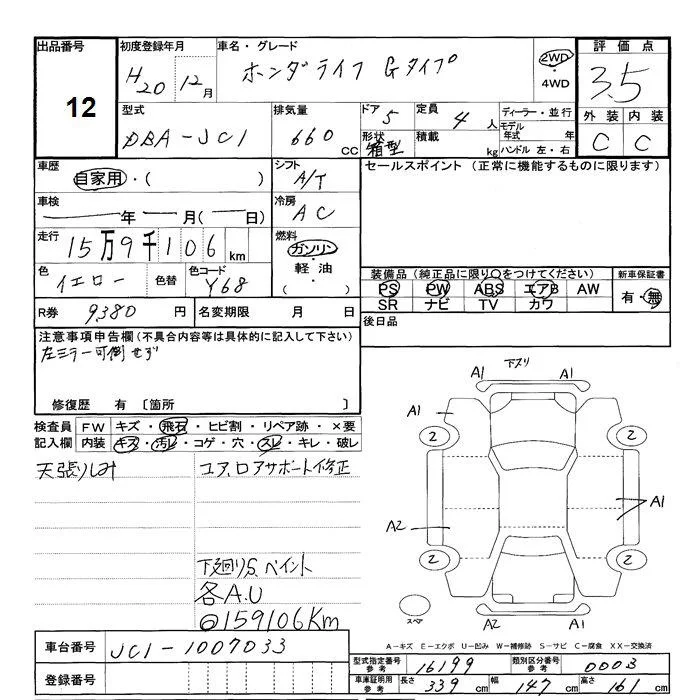 出品番号 12
初度登録年月 H20年 12月
車名・グレード ホンダライフ Gタイプ
2WD・4WD
評価点 3.5
外装 内装
C C
型式 DBA-JC1
排気量 660cc
ドア 5 形状 箱型
定員 4人 積載 kg
ディーラー・並行
モデル年式 年
ハンドル 左・右
車歴 自家用・( )
シフト A/T
セールスポイント (正常に機能するものに限ります)
車検 年 月( 日)
冷房 AC
走行 15万9千106km
燃料 ガソリン・軽油・( )
色 イエロー 色替 色コード Y68
装備品(純正品に限り○をつけてください) 新車保証書
PS PW ABS エアB AW 有・無
SR ナビ TV カワ
R券 9380円 名変期限 月 日
後日品
注意事項申告欄(不具合内容等は具体的に記入して下さい)
左ミラー可倒せず
修復歴 有 〔箇所 〕
検査員記入欄 FW キズ・飛石・ヒビ割・リペア跡・×要
内装 キズ・汚レ・コゲ・穴・スレ・キレ・破レ
天張りしみ
コア、ロアサポート修正
下廻りS、ペイント
各A.U
◎159106Km
下スリ
A1 A1
A1
2 2
A2 A1
2 2
A2 A1
スペア
A-キズ E-エクボ U-凹み W-補修跡 S-サビ C-腐食 XX-交換済
車台番号 JC1-1007033
登録番号
型式指定番号 参考 16199 類別区分番号 参考 0003
車庫証明用 参考 長さ 339cm 幅 147cm 高さ 161cm